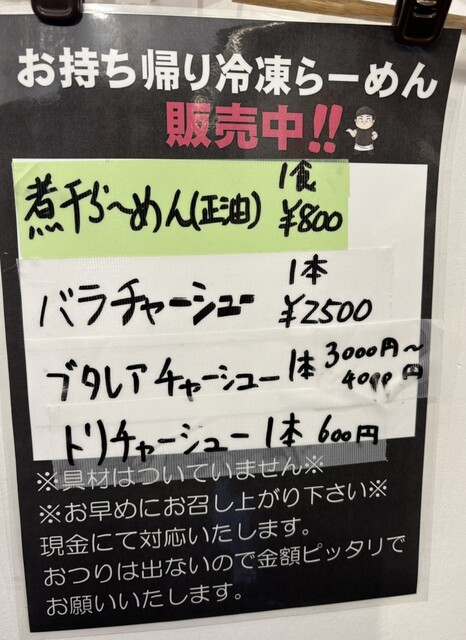 お持ち帰り冷凍らーめん
販売中!!
煮干らーめん(正油) 1食 ¥800
バラチャーシュー 1本 ¥2500
ブタレアチャーシュー 1本 3000円〜4000円
トリチャーシュー 1本 600円
※具材はついていません※
※お早めにお召し上がり下さい※
現金にて対応いたします。
おつりは出ないので金額ピッタリで
お願いいたします。